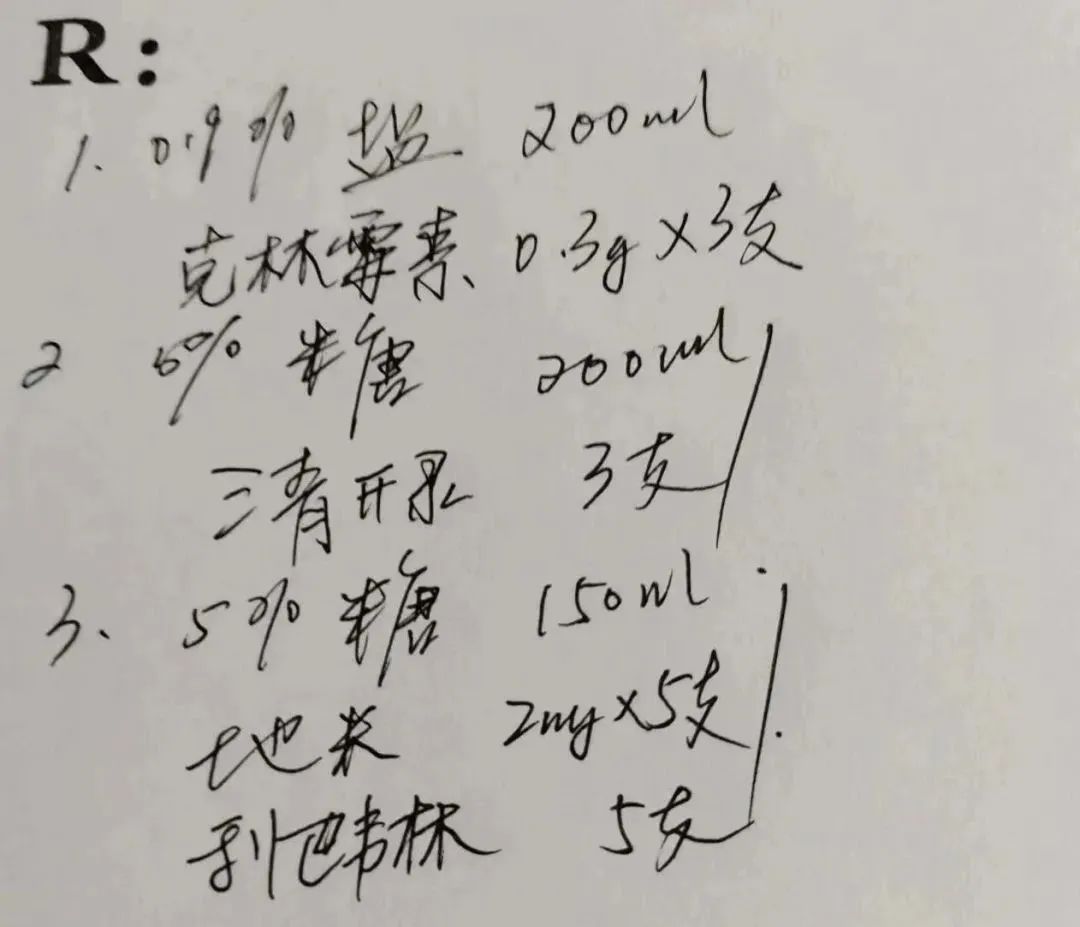 R:
1. 0.9% 盐 200ml
克林霉素 0.3g×3支
2 5% 糖 200ml
清开灵 3支
3. 5% 糖 150ml
地米 2mg×5支
利巴韦林 5支